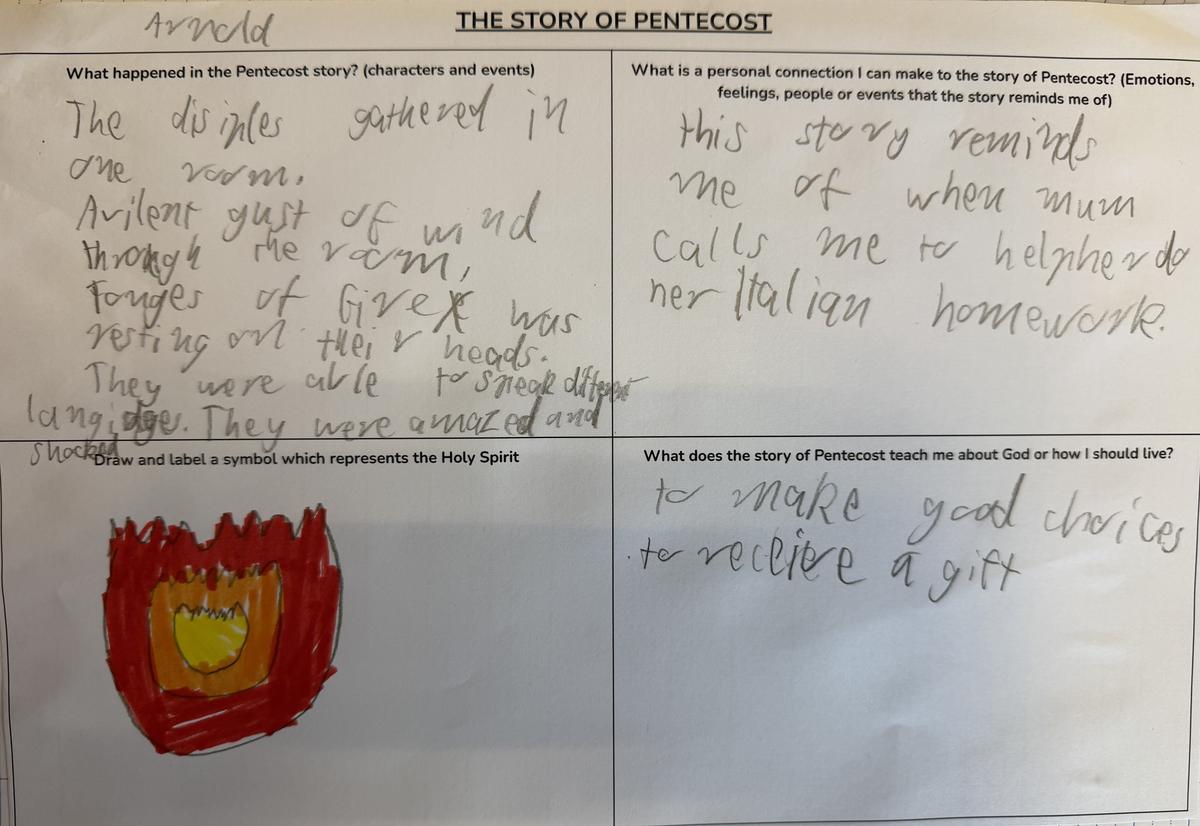 Arnold
THE STORY OF PENTECOST
What happened in the Pentecost story? (characters and events)
The disiples gathered in
one room.
Avilent gust of wind
through the room,
Tonges of fire was
resting on their heads.
They were able to speak different
langidge. They were amazed and
shocked
What is a personal connection I can make to the story of Pentecost? (Emotions,
feelings, people or events that the story reminds me of)
this story reminds
me of when mum
calls me to help her do
her Italian homework.
Draw and label a symbol which represents the Holy Spirit
What does the story of Pentecost teach me about God or how I should live?
to make good choices
to receive a gift